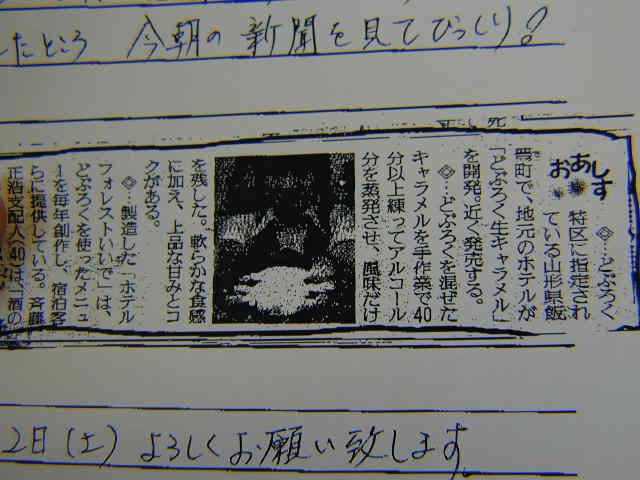 したところ 今朝の新聞を見てびっくり！
おあしす
◇…どぶろく
特区に指定され
ている山形県飯
豊町で、地元のホテルが
「どぶろく生キャラメル」
を開発。近く発売する。
◇…どぶろくを混ぜた
キャラメルを手作業で40
分以上練ってアルコール
分を蒸発させ、風味だけ
を残した。軟らかな食感
に加え、上品な甘みとコ
クがある。
◇…製造した「ホテル
フォレストいいで」は、
どぶろくを使ったメニュ
ーを毎年創作し、宿泊客
らに提供している。斉藤
正酒支配人(40)は、「酒の
2日(土)よろしくお願い致します。